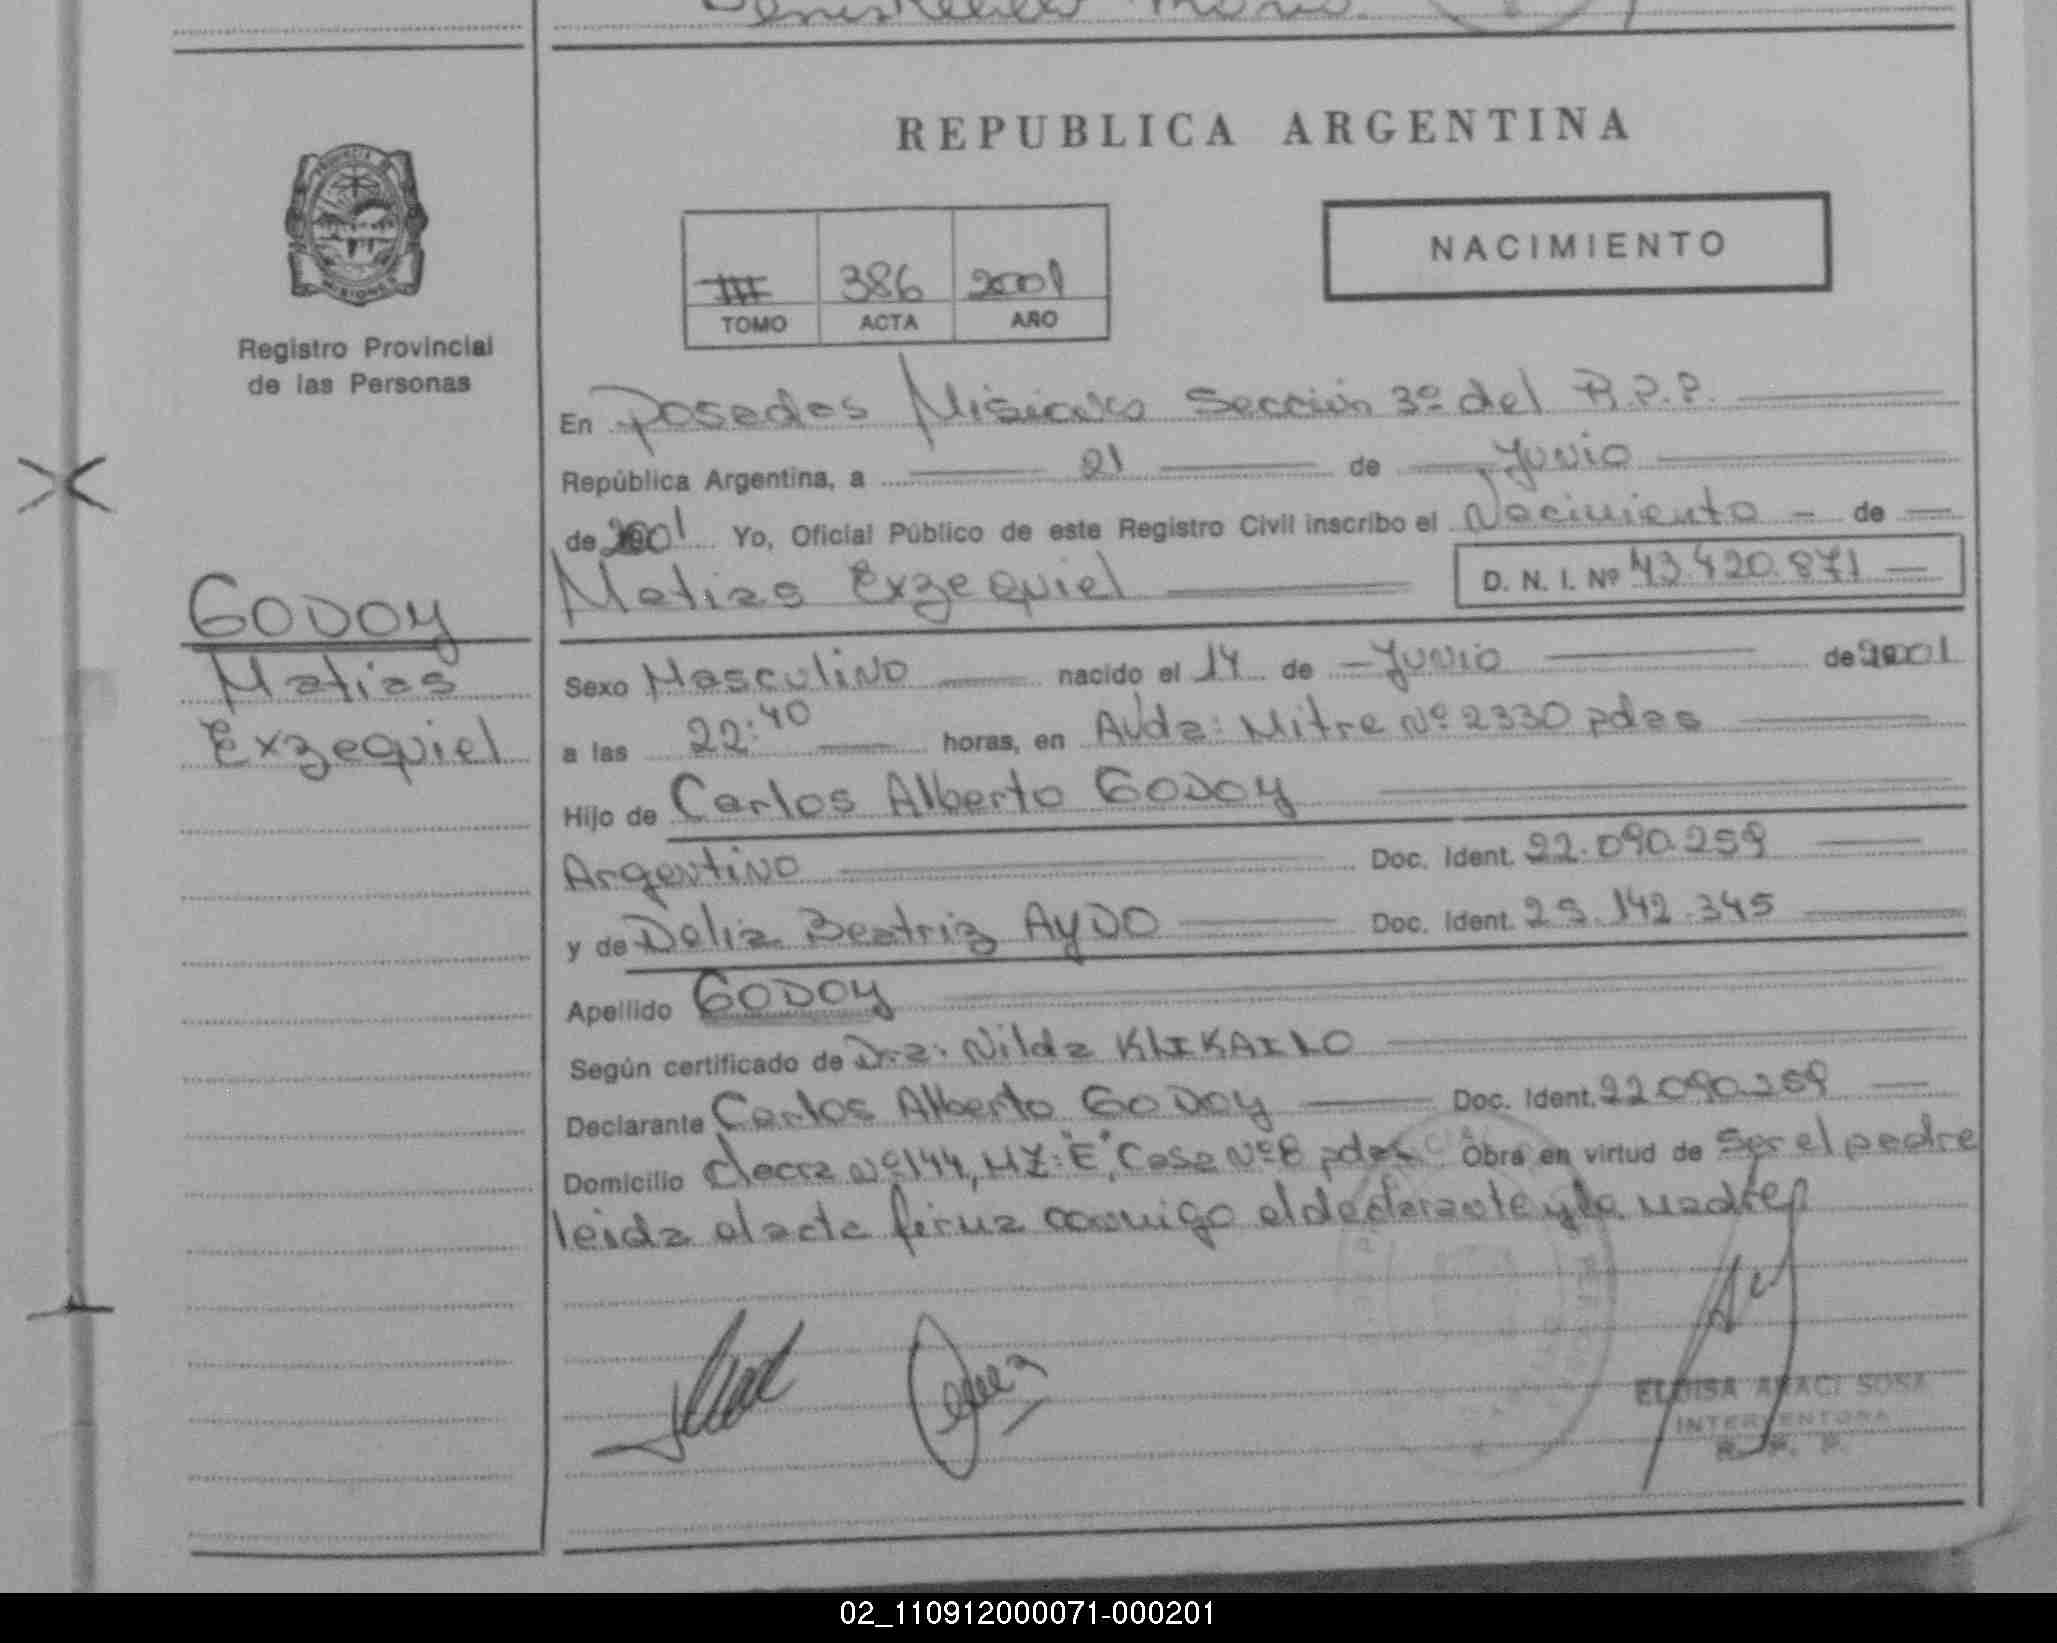 REPUBLICA ARGENTINA
NACIMIENTO
III 386 2001
TOMO ACTA AÑO
PROVINCIA DE MISIONES
Registro Provincial
de las Personas
En Posadas Misiones Sección 3º del R.P.P.
República Argentina, a 21 de Junio
de 2001 Yo, Oficial Público de este Registro Civil inscribo el Nacimiento - de
Matias Exzequiel D. N. I. Nº 43.420.871
GODOY
Matias
Exzequiel
Sexo Masculino nacido el 14 de Junio de 2001
a las 22:40 horas, en Avda: Mitre Nº 2330 pdas
Hijo de Carlos Alberto GODOY
Argentino Doc. Ident. 22.090.259
y de Delia Beatriz AYDO Doc. Ident. 25.142.345
Apellido GODOY
Según certificado de Dra: Nilda KLIKAILO
Declarante Carlos Alberto GODOY Doc. Ident. 22.090.259
Domicilio chacra Nº 144, MZ: "E", Casa Nº 8 pdas Obra en virtud de ser el padre
leida el acta firma conmigo el declarante y la madre
ELOISA ARACI SOSA
INTERVENTORA
R. P. P.
02_110912000071-000201